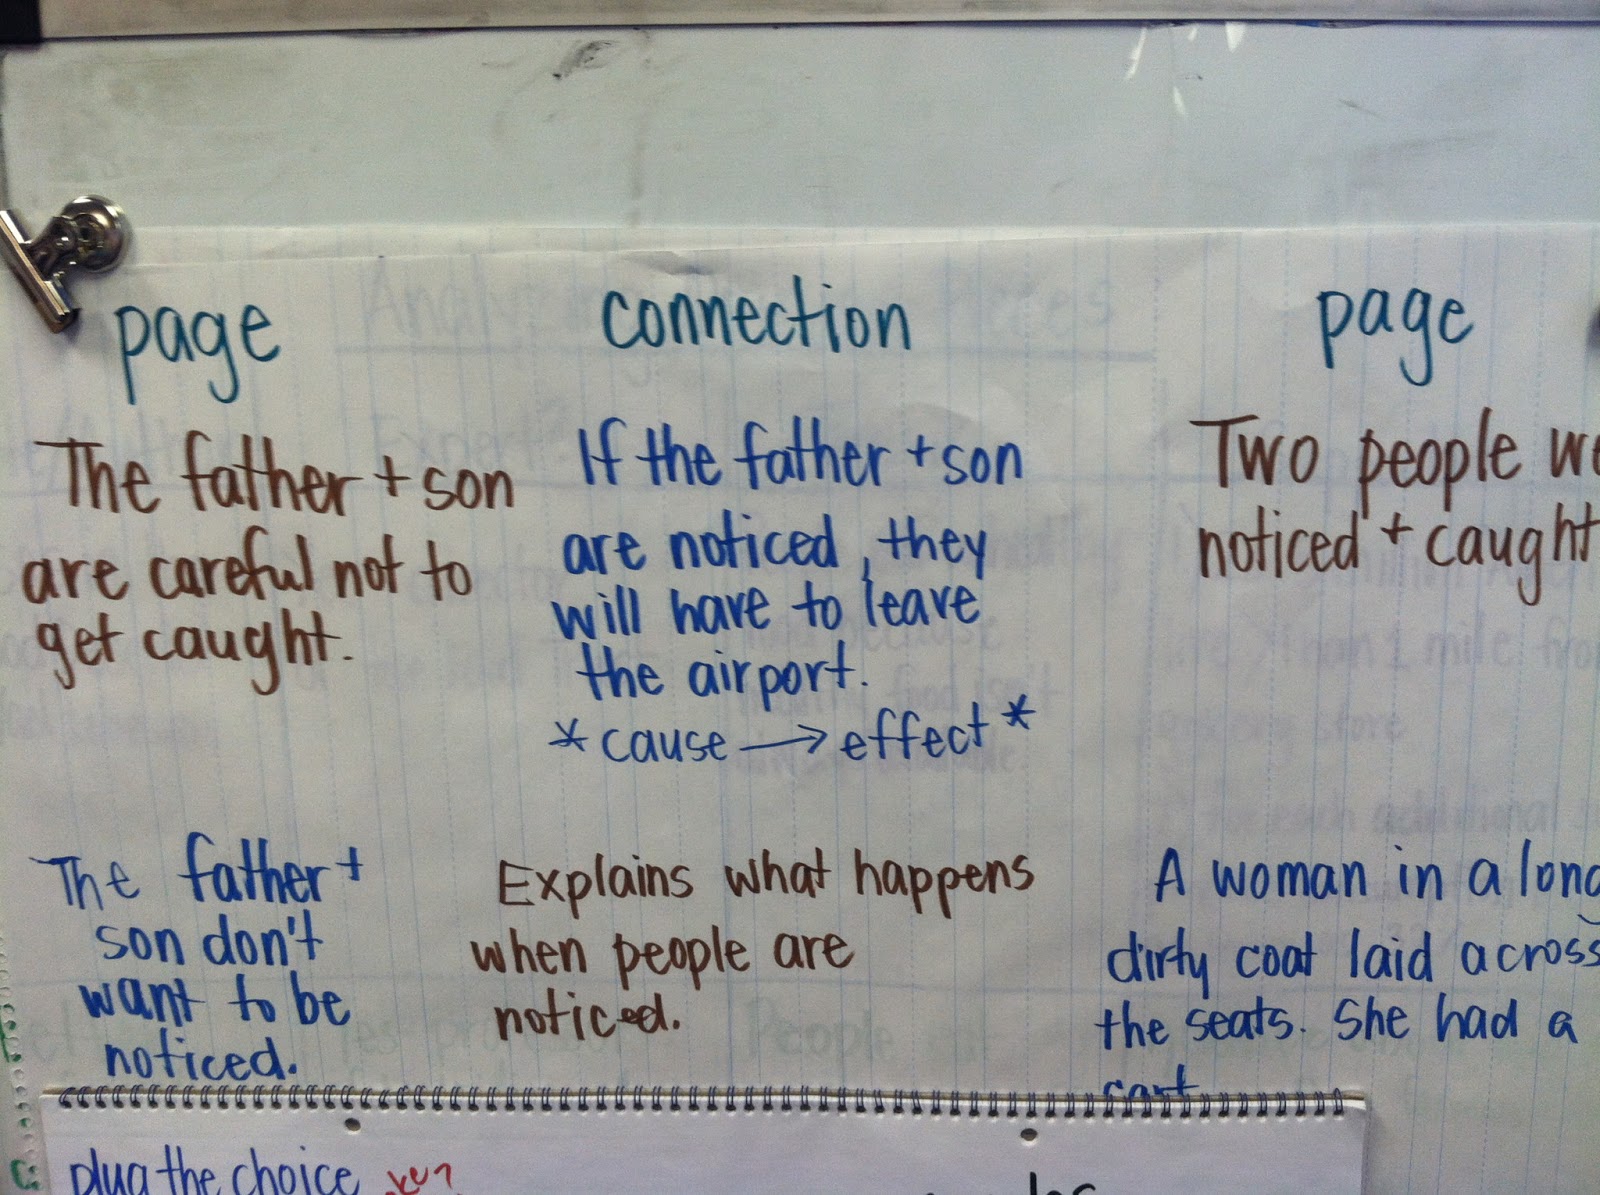 page
connection
page
The father + son
are careful not to
get caught.
If the father + son
are noticed, they
will have to leave
the airport.
*cause → effect*
Two people we
noticed + caught
The father +
son don't
want to be
noticed.
Explains what happens
when people are
noticed.
A woman in a long
dirty coat laid across
the seats. She had a
cart
plug the choice